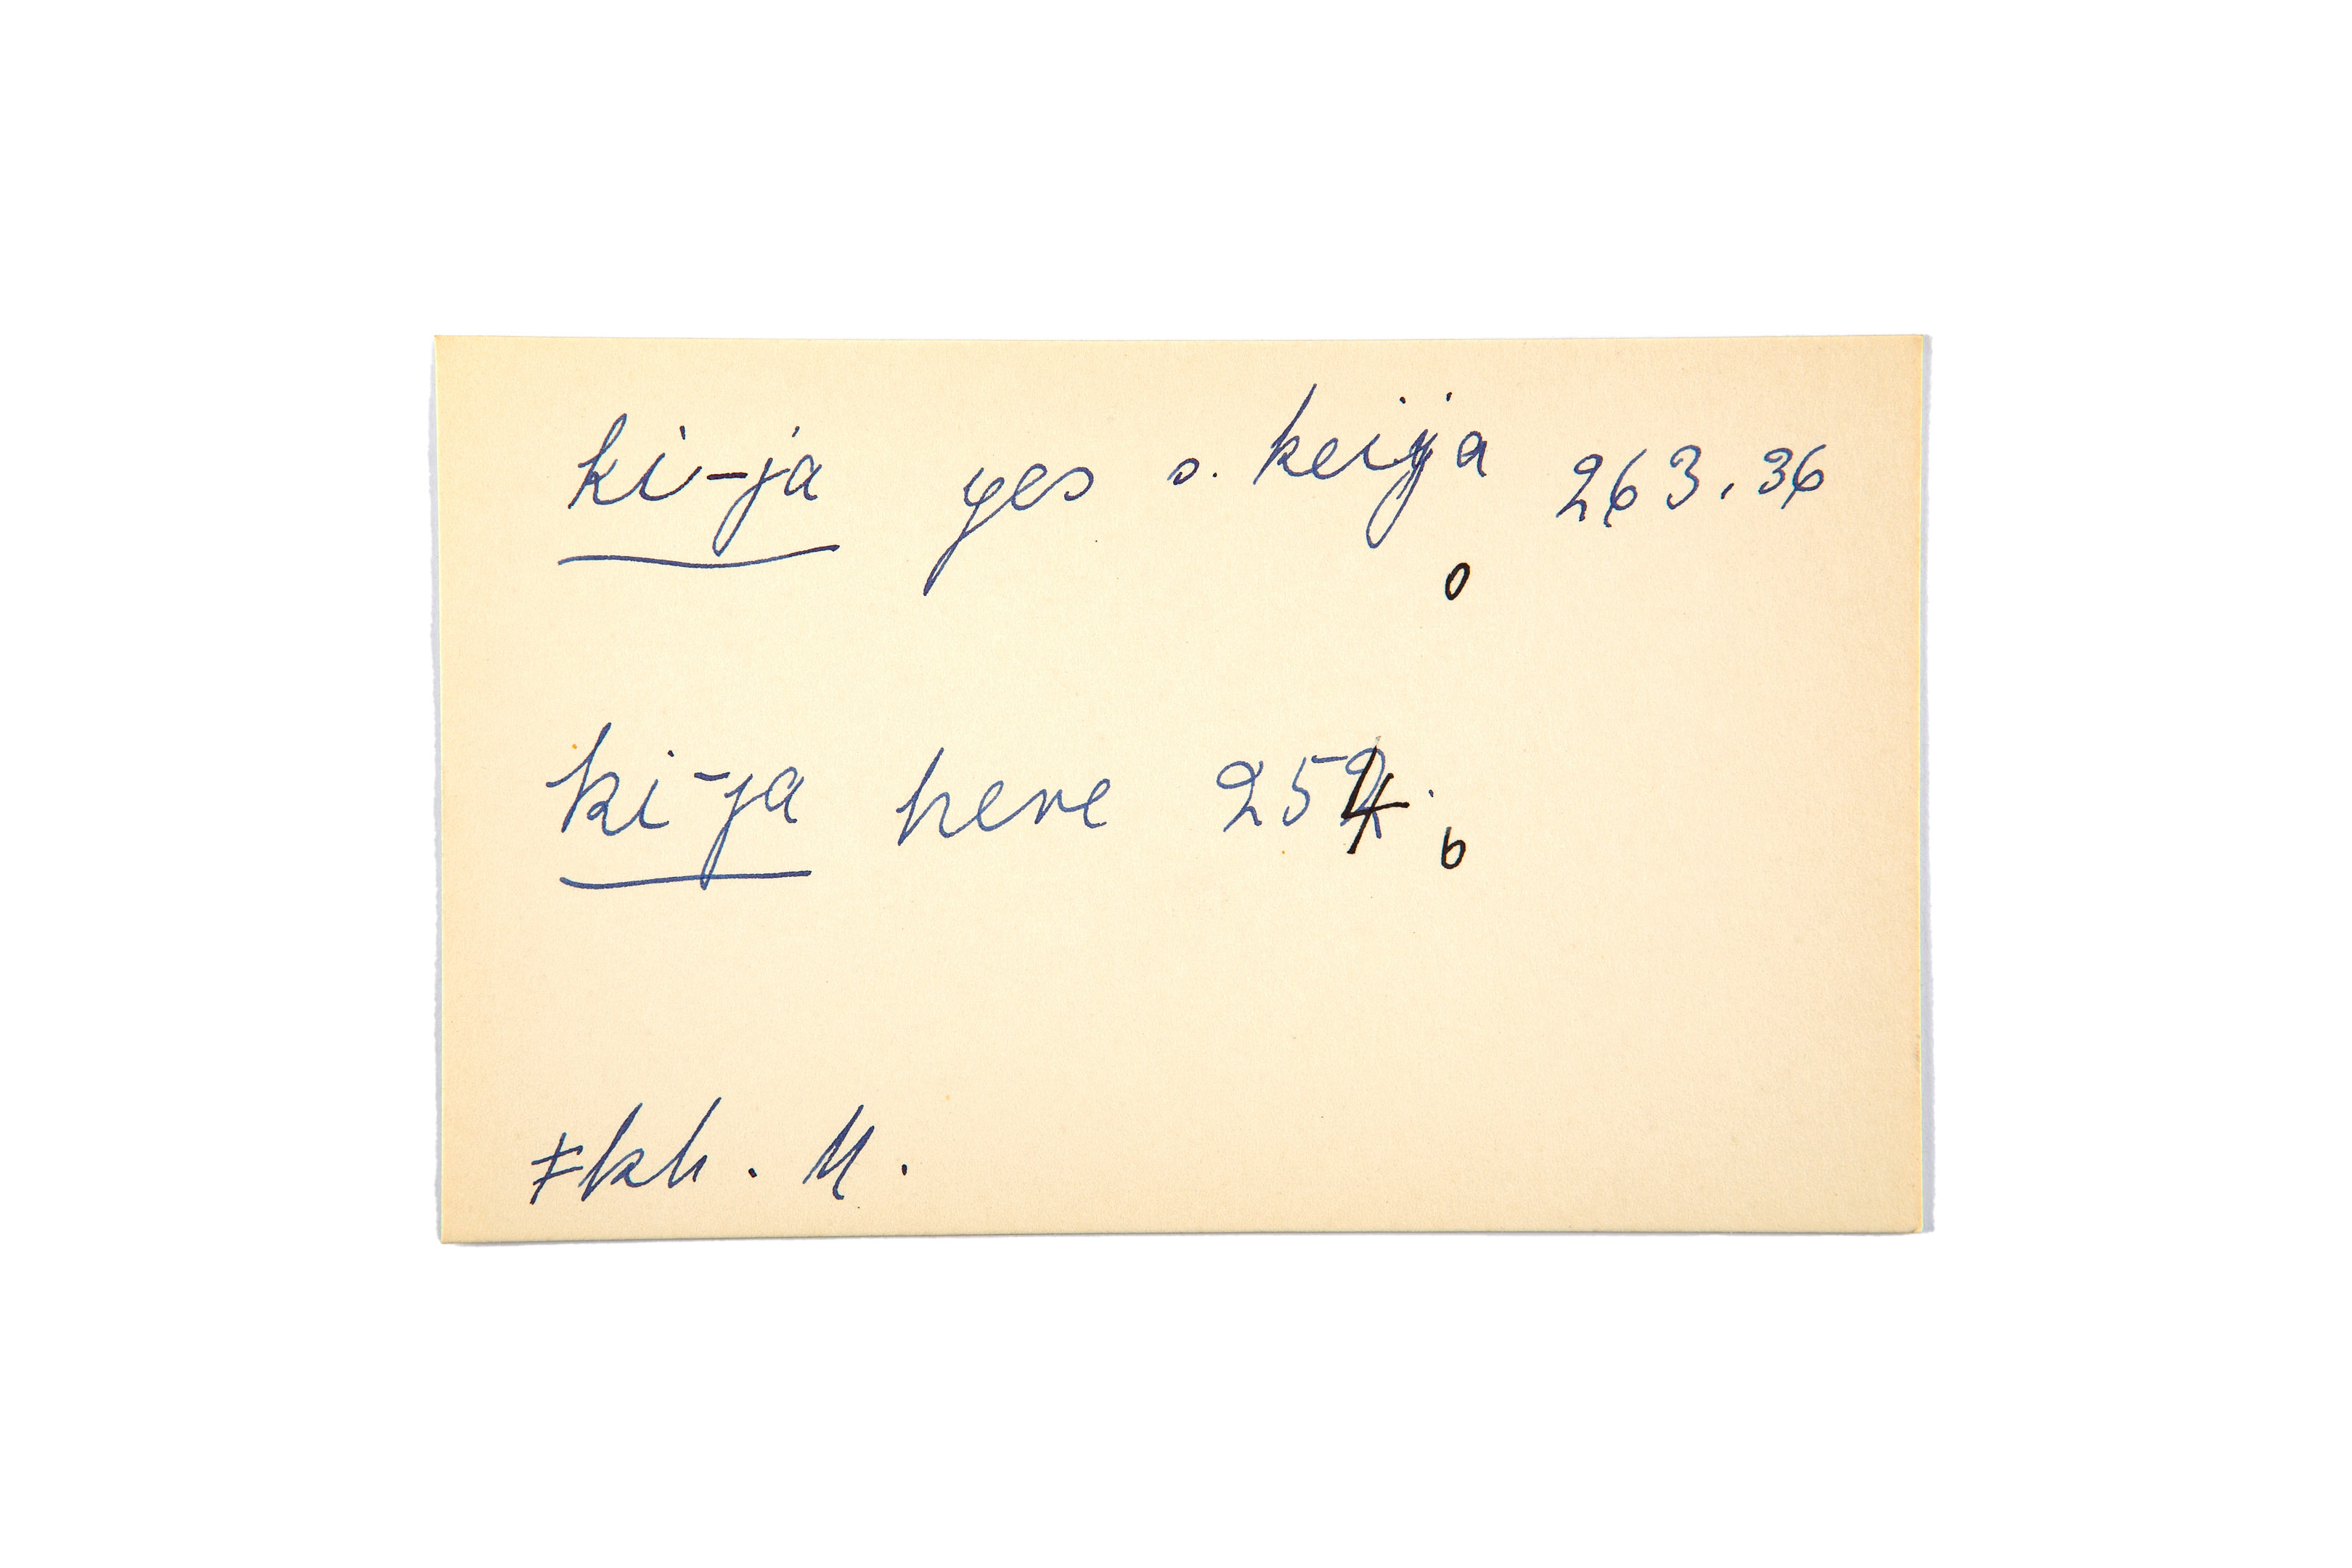 ki-ja yes s. keija 263.36
o
ki-ja here 254.
6
ǂkh. M.